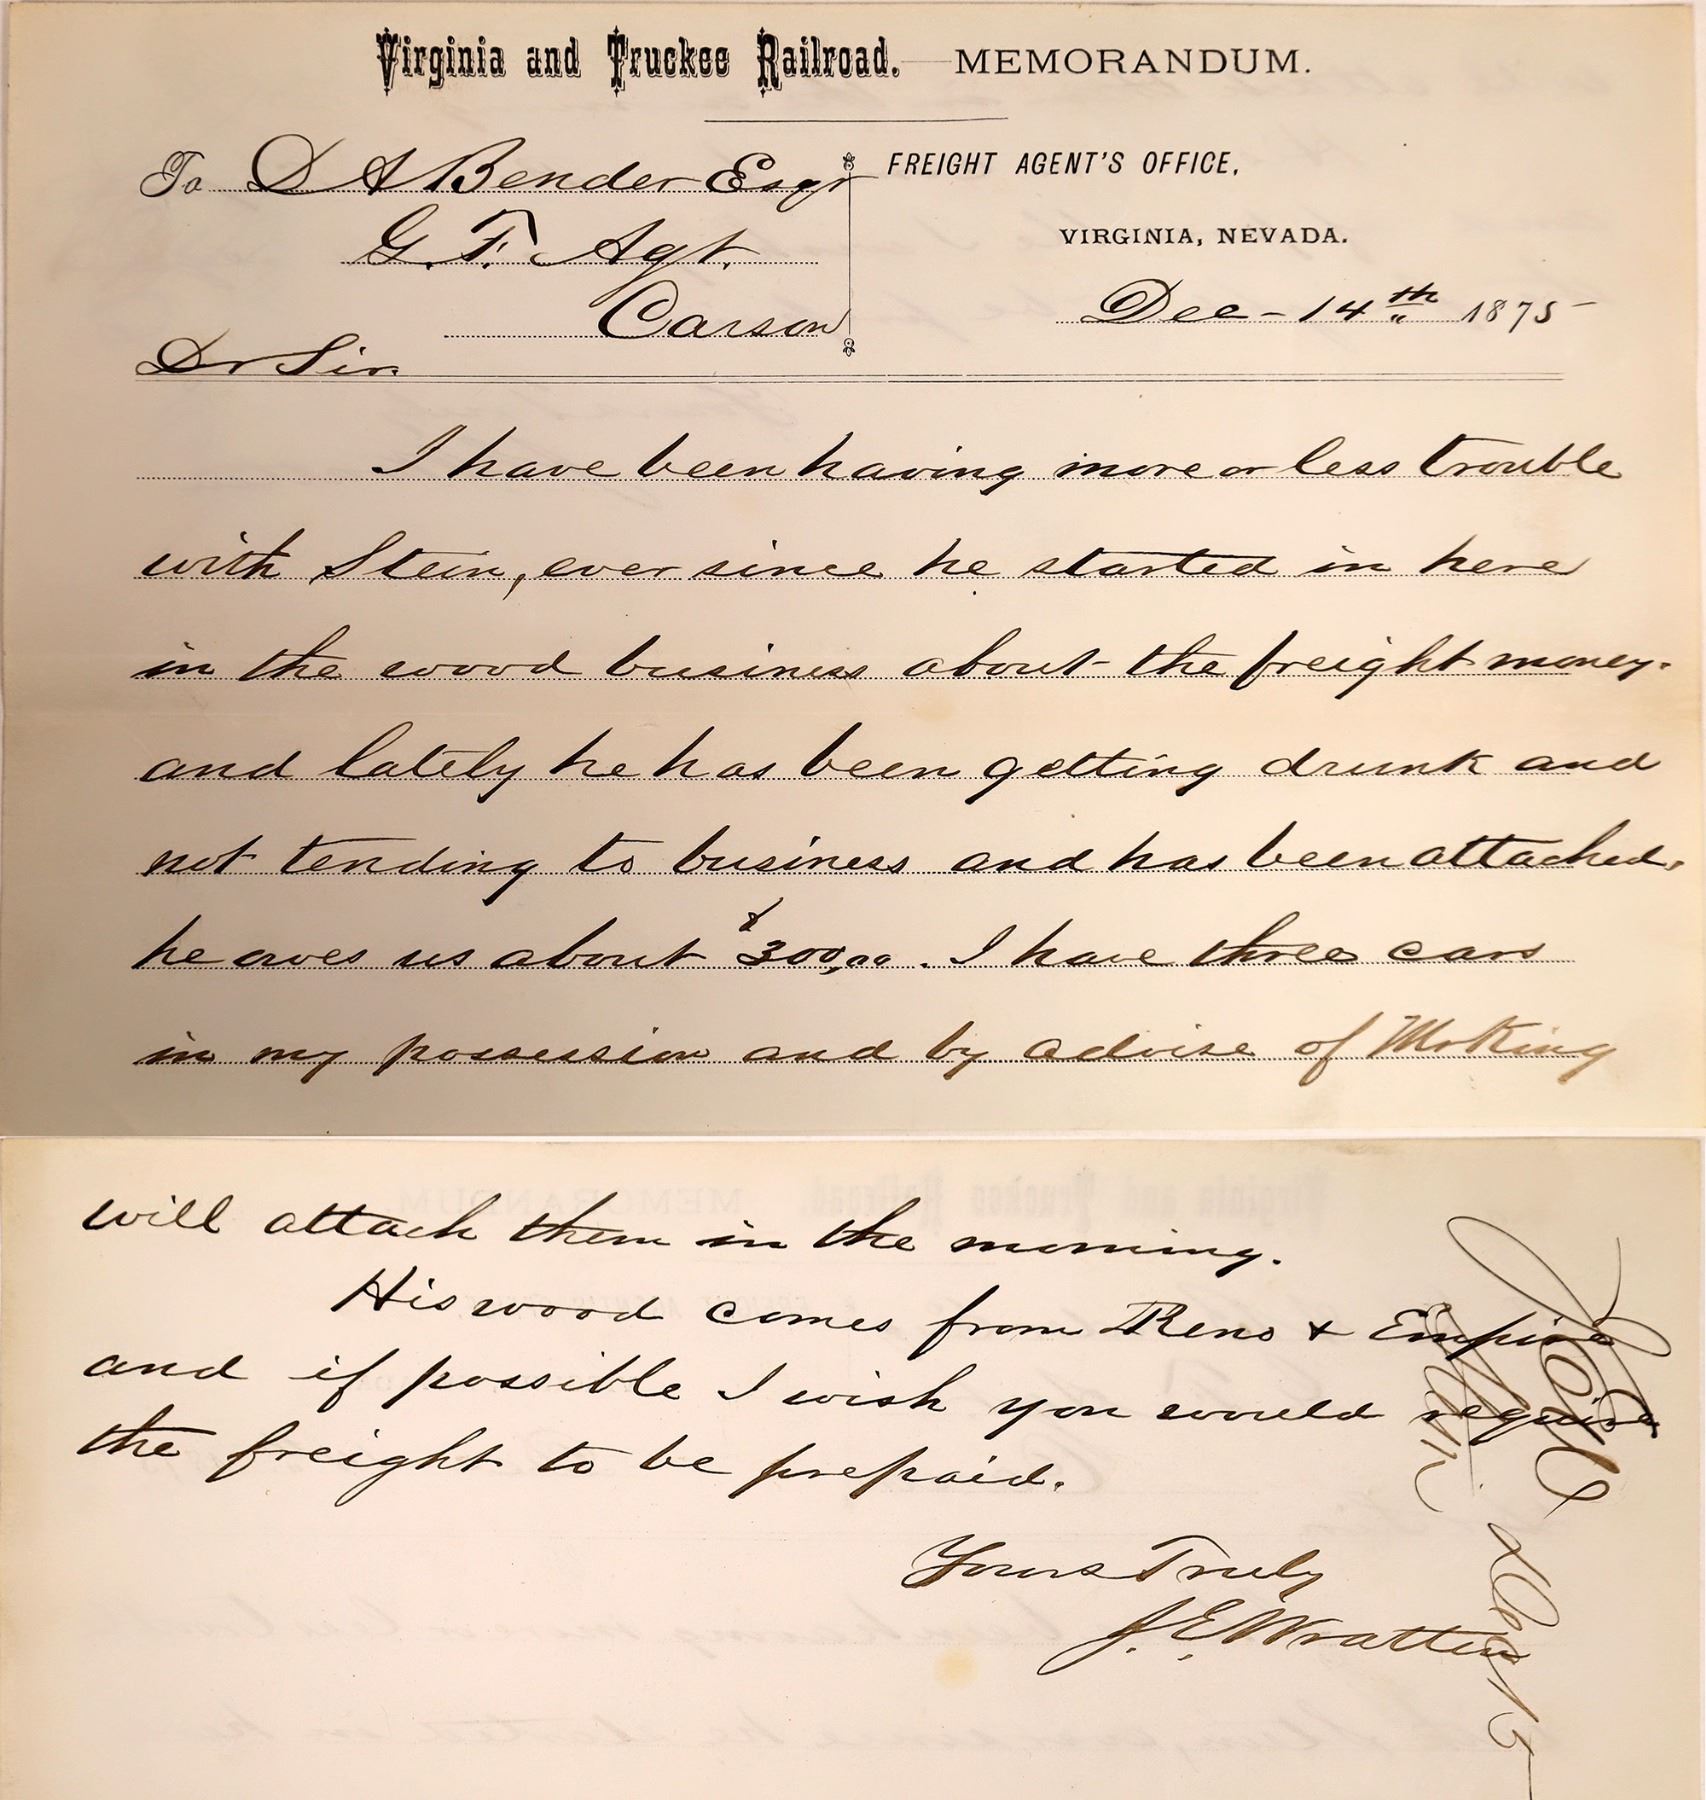 Virginia and Truckee Railroad. MEMORANDUM.
To D A Bender Esqr
G. F. Agt.
Carson
FREIGHT AGENT'S OFFICE,
VIRGINIA, NEVADA.
Dec - 14th 1875
Dr Sir.
I have been having more or less trouble
with Stein, ever since he started in here
in the wood business about the freight money.
and lately he has been getting drunk and
not tending to business and has been attached,
he owes us about $300,00. I have three cars
in my possession and by advise of Mr King
will attach them in the morning.
His wood comes from Reno & Empire
and if possible I wish you would require
the freight to be prepaid.
Yours Truly
J. E. Wratten
Dec 15